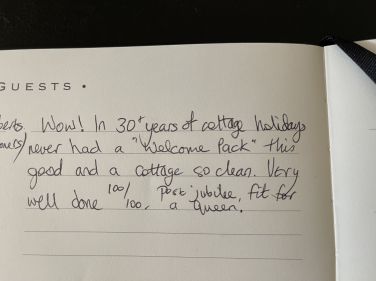 GUESTS •
Wow! In 30+ years of cottage holidays
never had a "Welcome Pack" this
good and a cottage so clean. Very
well done 100/100, post jubilee, fit for
a Queen.